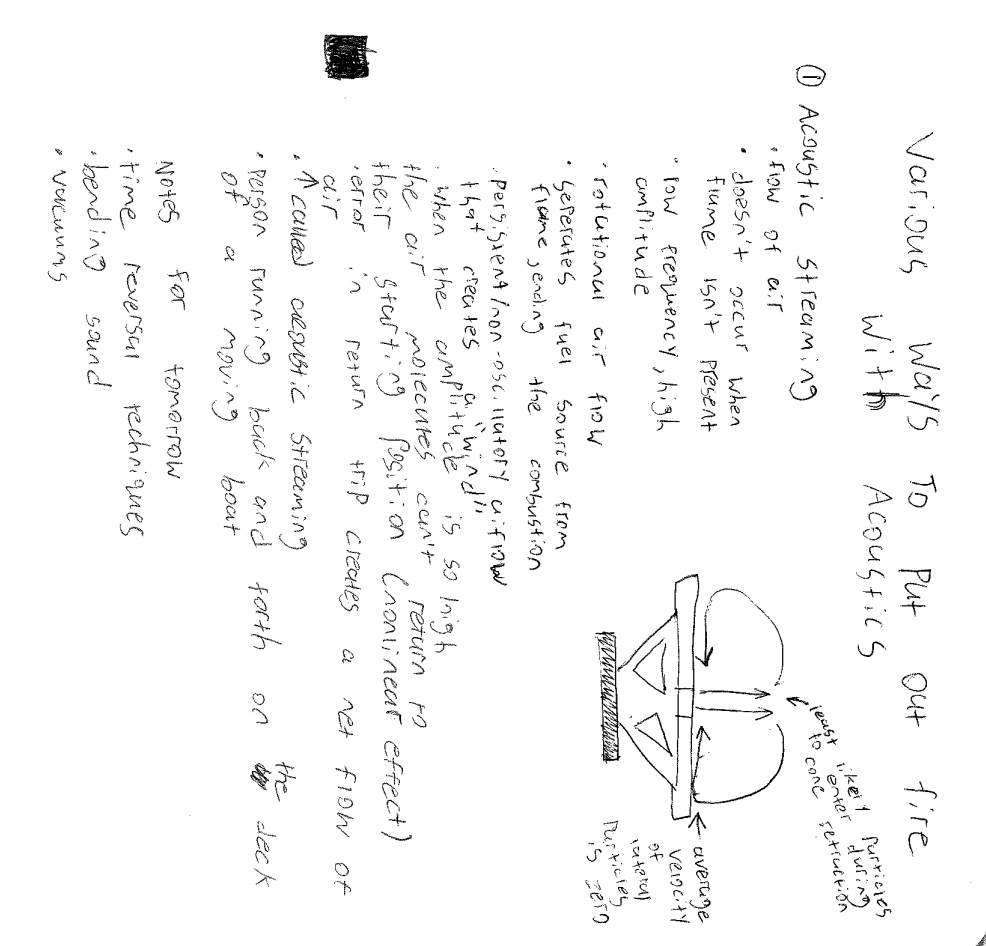 Various Ways To Put Out fire
With Acoustics
① Acoustic Streaming
• flow of air
• doesn't occur when
flame isn't present
• low frequency, high
amplitude
• rotational air flow
• seperates fuel source from
flame, ending the combustion
• persistent/non-oscillatory airflow
that creates a "wind"
• when the amplitude is so high
the air molecules can't return to
their starting position (nonlinear effect)
• error in return trip creates a net flow of
air
• ↑ called acoustic streaming
• Person running back and forth on the deck
of a moving boat
Notes for tomorrow
• time reversal techniques
• bending sound
• vacuums
least likely particles
to enter during
cone retraction
average
velocity
of
lateral
Particles
is zero